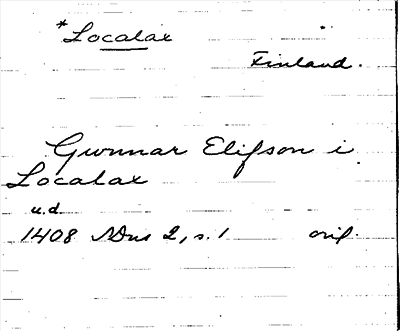 *Localax
Finland.
Gunnar Elifson i
Localax
u.d.
1408 NDns 2, s. 1 orig.